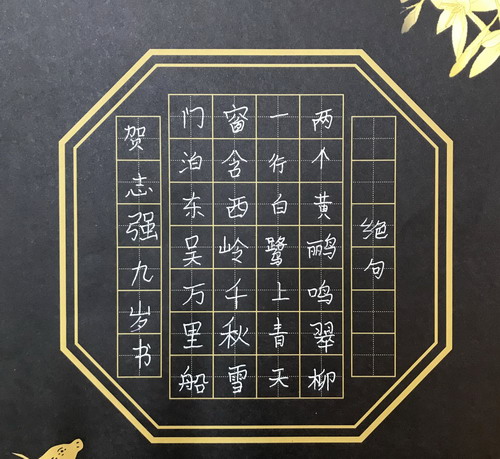 绝句
两个黄鹂鸣翠柳
一行白鹭上青天
窗含西岭千秋雪
门泊东吴万里船
贺志强九岁书